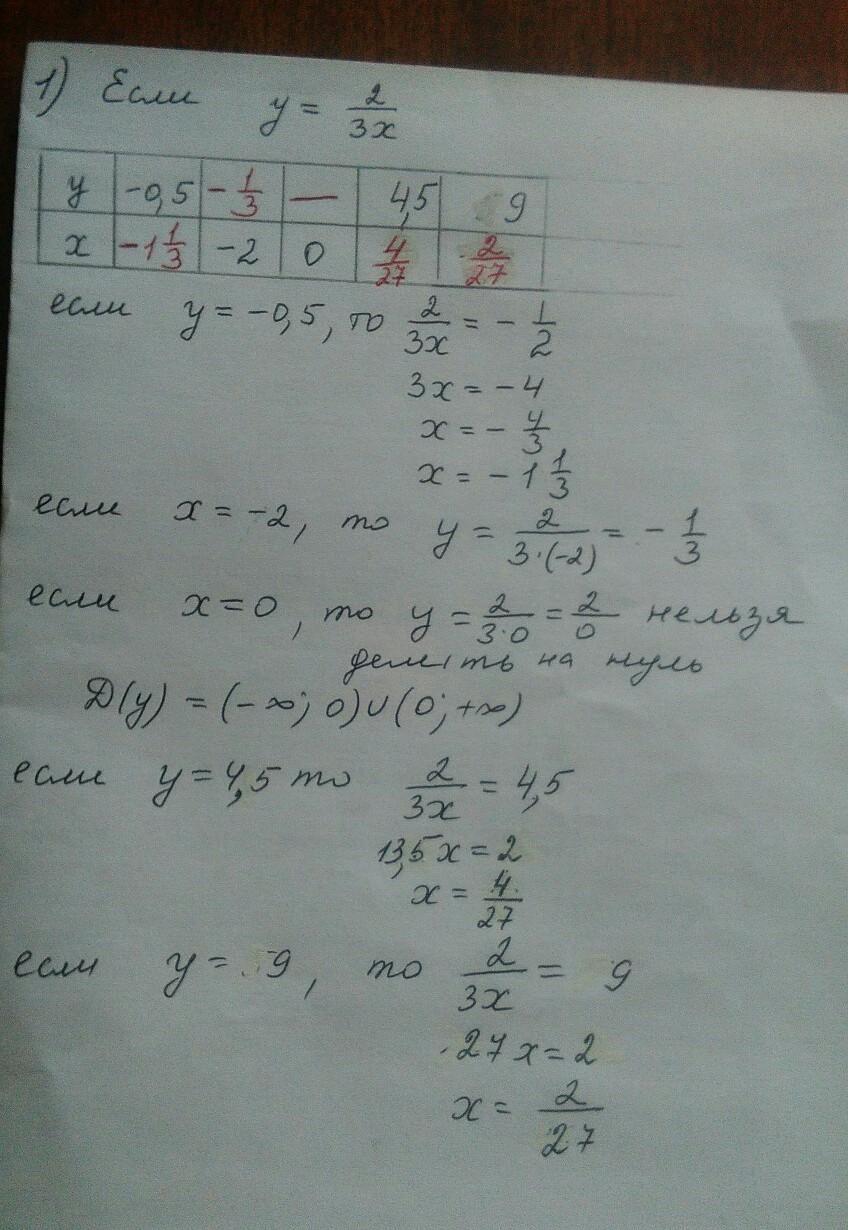 1) Если y = 2/3x
y | -0,5 | -1/3 | — | 4,5 | 9
x | -1 1/3 | -2 | 0 | 4/27 | 2/27
если y = -0,5, то 2/3x = -1/2
3x = -4
x = -4/3
x = -1 1/3
если x = -2, то y = 2/3·(-2) = -1/3
если x = 0, то y = 2/3·0 = 2/0 нельзя
делить на нуль
D(y) = (-∞; 0)∪(0; +∞)
если y = 4,5 то 2/3x = 4,5
13,5x = 2
x = 4/27
если y = 9, то 2/3x = 9
27x = 2
x = 2/27